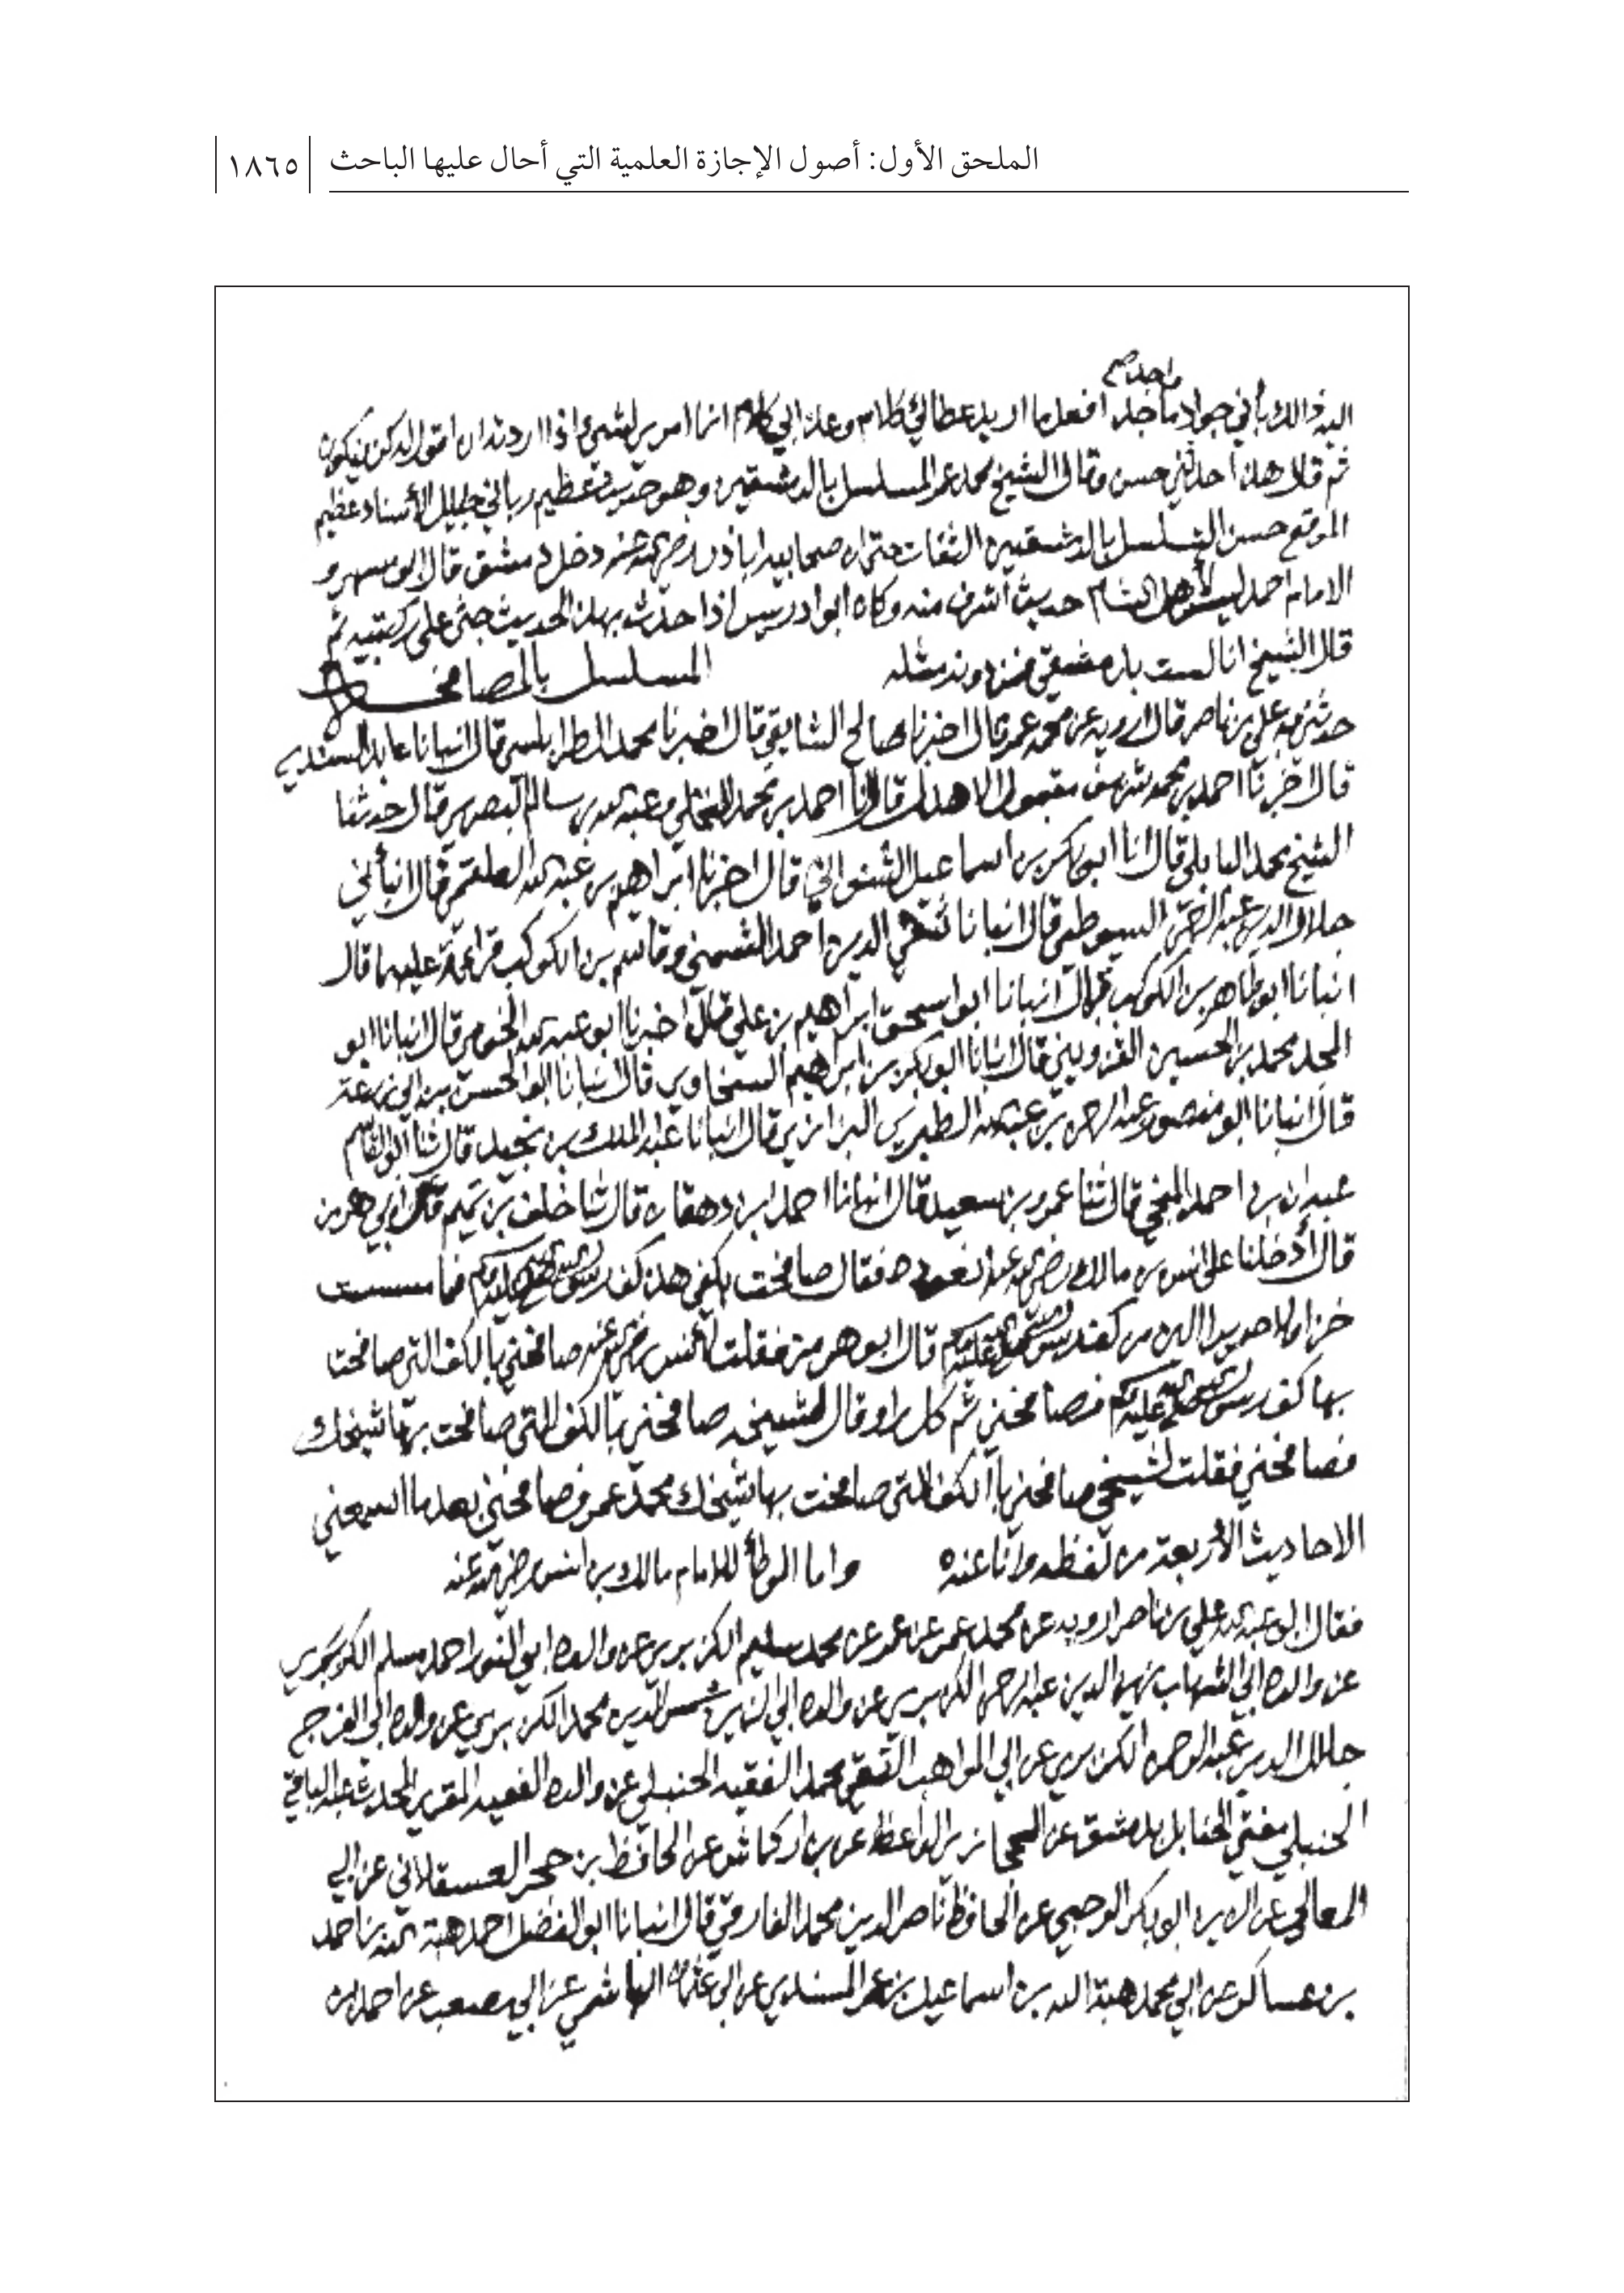 الملحق الأول: أصول الإجازة العلمية التي أحال عليها الباحث
١٨٦٥
واجد صح
ذالك بأني جواد ماجد افعل ما اريد عطائي كلام وعذابي كلام انما امري لشيء اذا اردته ان اقول له كن فيكون
ثم قال هذا حديث حسن وقال الشيخ محمد عمر المسلسل بالدمشقيين وهو حديث عظيم رباني جليل الأسناد عظيم
الموقع حسن التسلسل بالدمشقيين الثقات حتى ان صحابيه اباذر رضي الله عنه دخل دمشق قال ابو مسهر و
الامام احمد ليس لأهل الشام حديث اشرف منه وكان ابو ادريس اذا حدث بهذا الحديث جثى على ركبتيه ثم
قال الشيخ انا لست بدمشقي
المسلسل بالمصافحة
حدثني به علي بن ناصر قال ارويه عن محمد عمر قال اخبرنا صالح قال اخبرنا محمد الطرابلسي قال انبانا عابد السندي
قال اخبرنا احمد بن محمد شريف مقبول الاهدل قال انا احمد بن محمد النخلي وعبد الله بن سالم البصري قال حدثنا
الشيخ محمد البابلي قال انا ابو بكر بن اسماعيل الشنواني قال اخبرنا ابراهيم بن عبد الله العلقمي قال انبأني
جلال الدين عبد الرحمن السيوطي قال انبانا تقي الدين احمد الشمني وقاسم بن الكوكب قراءة عليهما قال
انبانا ابو طاهر بن الكوكب قال انبانا ابو اسحق ابراهيم بن علي قال اخبرنا ابو عبد الله الخويي قال انبانا ابو
المجد محمد بن الحسين القزويني قال انبانا ابو بكر بن ابراهيم السخاوي قال انبانا ابو الحسن بن ابي زرعة
قال انبانا ابو منصور عبد الرحمن بن عبد الله الطبري البزازي قال انبانا عبد الملك بن نجيد قال ثنا ابو القاسم
عبدان بن احمد المنبجي قال ثنا عمرو بن سعيد قال انبانا احمد بن دهقان قال ثنا خلف بن تميم قال ابي هرمز
قال أدخلنا على انس بن مالك رضي الله عنه نعوده فقال صافحت بكفي هذه كف رسول الله صلى الله عليه وسلم فما مسست
خزا ولا حريرا الين من كف رسول الله صلى الله عليه وسلم قال ابو هرمز فقلت لأنس رضي الله عنه صافحني بالكف التي صافحت
بها كف رسول الله صلى الله عليه وسلم فصافحني ثم كل راو قال لشيخه صافحني بالكف التي صافحت بها شيخك
فصافحني فقلت لشيخي صافحني بالكف التي صافحت بها شيخك محمد عمر فصافحني بعد ما اسمعني
الاحاديث الأربعة من لفظه وانا عنه
واما الموطأ للامام مالك بن انس رضي الله عنه
فقال ابو عبد الله علي بن ناصر ارويه عن محمد عمر عن عمر عن محمد سليم الكزبري عن والده ابي النور احمد مسلم الكزبري
عن والده ابي الشهاب الدين عبد الرحمن الكزبري عن والده ابي شمس الدين محمد الكزبري عن والده ابي الفرج
جلال الدين عبد الرحمن الكزبري عن ابي المواهب التقي محمد الفقيه الحنبلي عن والده الفقيه المقري المحدث عبد الباقي
الحنبلي مفتي الحنابل بدمشق عن الحجازي الواعظ عن بن اركماش عن الحافظ بن حجر العسقلاني عن ابي
المعالي عن ابو بكر عن الحافظ ناصر الدين محمد الفارقي قال انبانا ابو الفضل احمد هبة الله بن احمد
بن عساكر عن ابي محمد هبة الله بن اسماعيل بن عمر السندي عن ابي عثمان الهاشمي عن ابي مصعب عن احمد بن